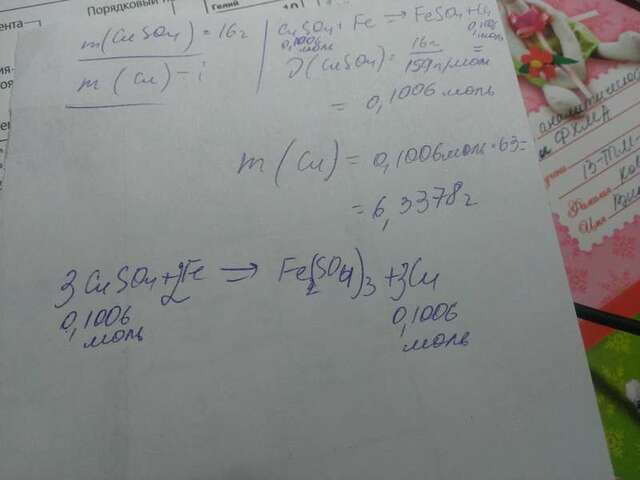 Порядковый н
Гелий
10
m(CuSO4) = 16г
m(Cu) - ?
CuSO4 + Fe → FeSO4 + Cu
0,1006 моль
0,1006 моль
ν(CuSO4) = 16г / 159г/моль =
= 0,1006 моль
m(Cu) = 0,1006моль · 63 =
= 6,3378г
3CuSO4 + 2Fe → Fe2(SO4)3 + 3Cu
0,1006 моль
0,1006 моль
аналитическо
и ФХМА
Фамилия
Имя